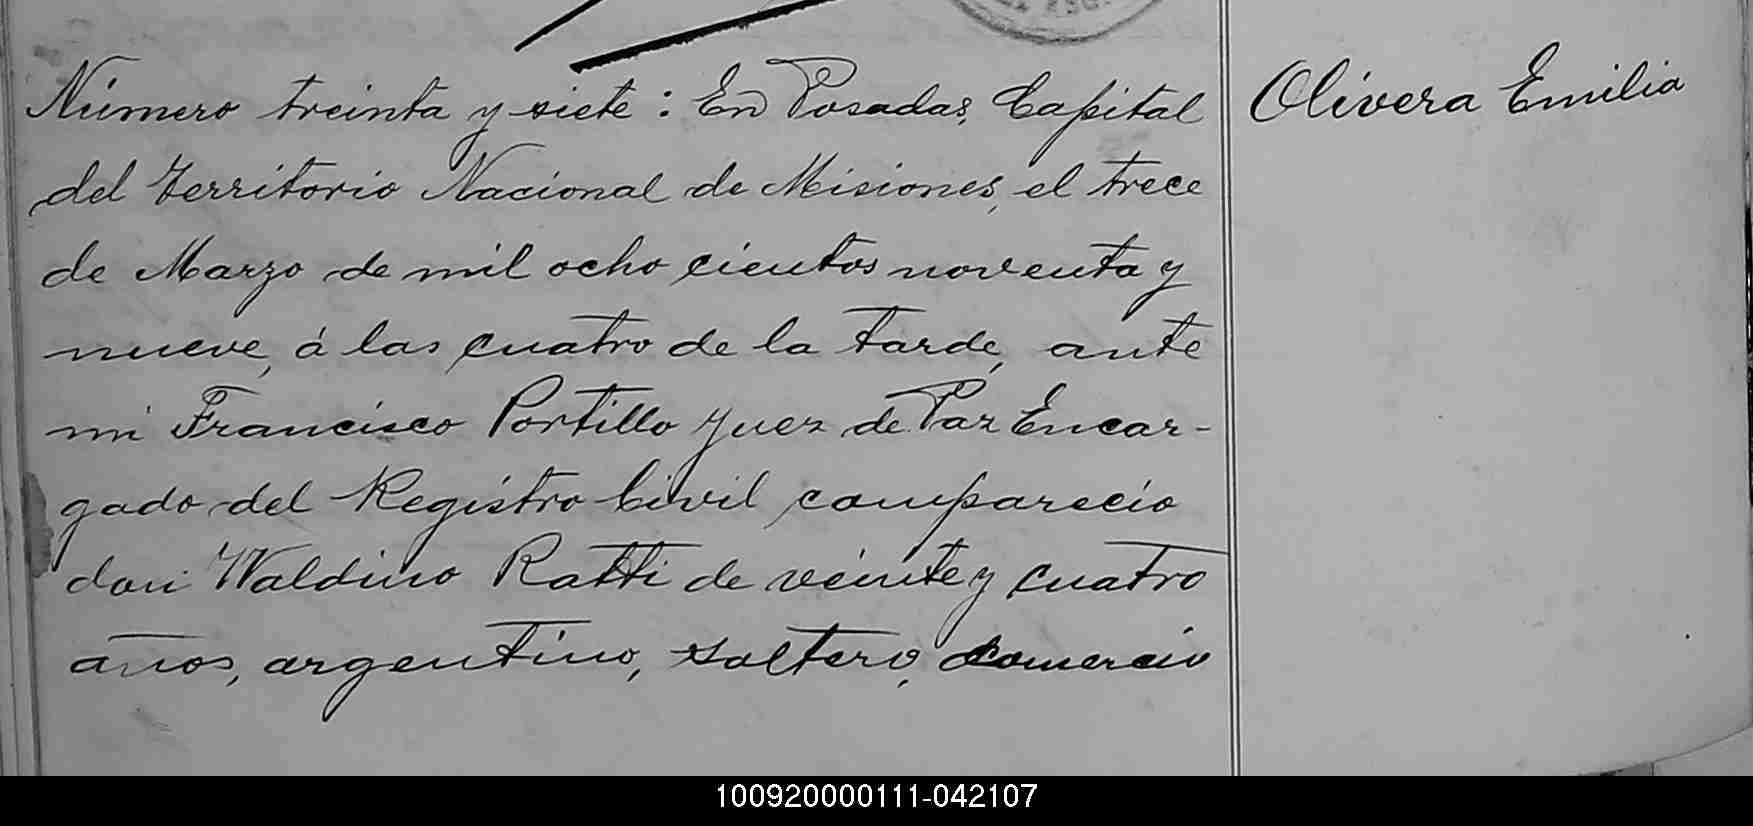 Número treinta y siete: En Posadas, Capital
del Territorio Nacional de Misiones, el trece
de Marzo de mil ocho cientos noventa y
nueve, á las cuatro de la tarde, ante
mi Francisco Portillo Juez de Paz Encar-
gado del Registro Civil comparecio
don Waldino Ratti de veinte y cuatro
años, argentino, soltero, comercio
Olivera Emilia
100920000111-042107